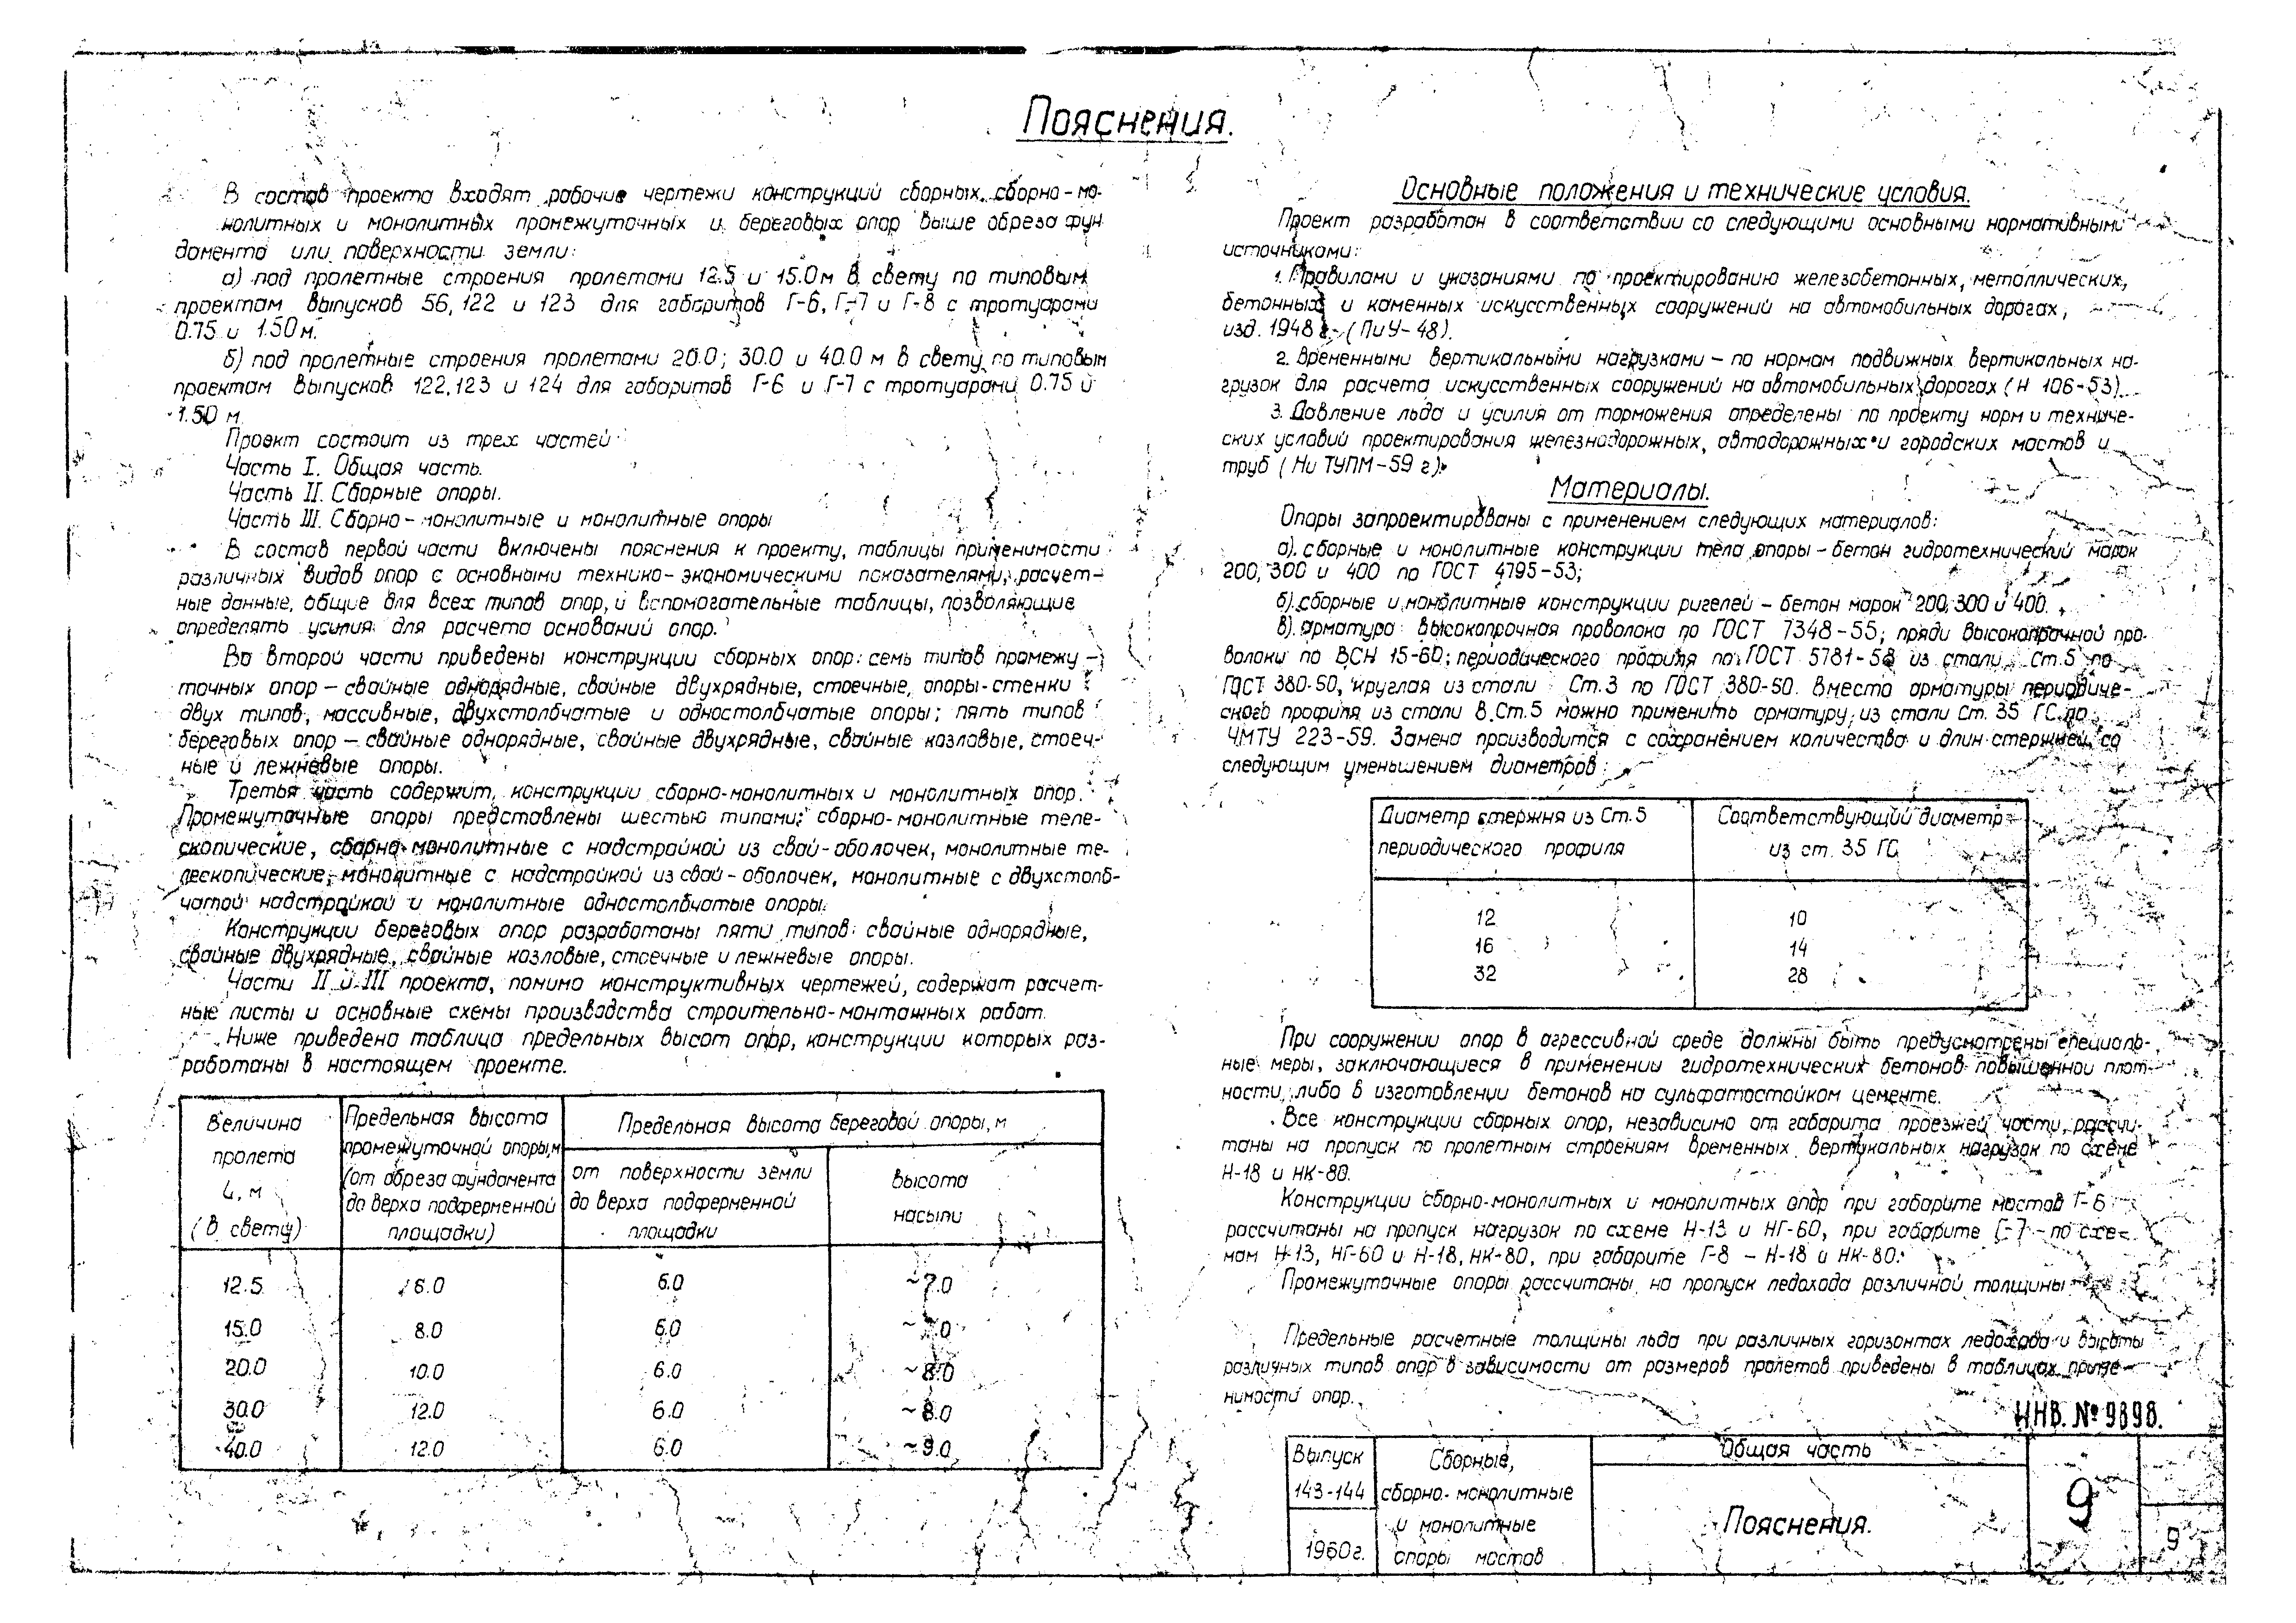 Пояснения.
В состав проекта входят рабочие чертежи конструкций сборных, сборно-мо-
нолитных и монолитных промежуточных и береговых опор выше обреза фун
дамента или поверхности земли:
а) под пролетные строения пролетами 12.5 и 15.0 м в свету по типовым
проектам выпусков 56, 122 и 123 для габаритов Г-6, Г-7 и Г-8 с тротуарами
0.75 и 1.50 м.
б) под пролетные строения пролетами 20.0; 30.0 и 40.0 м в свету по типовым
проектам выпусков 122, 123 и 124 для габаритов Г-6 и Г-7 с тротуарами 0.75 и
1.50 м.
Проект состоит из трех частей
Часть I. Общая часть.
Часть II. Сборные опоры.
Часть III. Сборно-монолитные и монолитные опоры
В состав первой части включены пояснения к проекту, таблицы применимости
различных видов опор с основными технико-экономическими показателями, расчет-
ные данные, общие для всех типов опор, и вспомогательные таблицы, позволяющие
определять усилия для расчета оснований опор.
Во второй части приведены конструкции сборных опор: семь типов промежу-
точных опор – свайные однорядные, свайные двухрядные, стоечные, опоры-стенки
двух типов, массивные, двухстолбчатые и одностолбчатые опоры; пять типов
береговых опор – свайные однорядные, свайные двухрядные, свайные козловые, стоеч-
ные и лежневые опоры.
Третья часть содержит конструкции сборно-монолитных и монолитных опор.
Промежуточные опоры представлены шестью типами: сборно-монолитные теле-
скопические, сборно-монолитные с надстройкой из свай-оболочек, монолитные те-
лескопические, монолитные с надстройкой из свай-оболочек, монолитные с двухстолб-
чатой надстройкой и монолитные одностолбчатые опоры.
Конструкции береговых опор разработаны пяти типов: свайные однорядные,
свайные двухрядные, свайные козловые, стоечные и лежневые опоры.
Части II и III проекта, помимо конструктивных чертежей, содержат расчет-
ные листы и основные схемы производства строительно-монтажных работ.
Ниже приведена таблица предельных высот опор, конструкции которых раз-
работаны в настоящем проекте.
Величина пролета L, м (в свету)
Предельная высота промежуточной опоры, м (от обреза фундамента до верха подферменной площадки)
Предельная высота береговой опоры, м
от поверхности земли до верха подферменной площадки
высота насыпи
12.5 6.0 6.0 ~7.0
15.0 8.0 6.0 ~7.0
20.0 10.0 6.0 ~8.0
30.0 12.0 6.0 ~8.0
40.0 12.0 6.0 ~9.0
Основные положения и технические условия.
Проект разработан в соответствии со следующими основными нормативными
источниками:
1. Правилами и указаниями по проектированию железобетонных, металлических,
бетонных и каменных искусственных сооружений на автомобильных дорогах,
изд. 1948 г. (ПиУ-48).
2. Временными вертикальными нагрузками – по нормам подвижных вертикальных на-
грузок для расчета искусственных сооружений на автомобильных дорогах (Н 106-53)
3. Давление льда и усилия от торможения определены по проекту норм и техниче-
ских условий проектирования железнодорожных, автодорожных и городских мостов и
труб (Ни ТУПМ-59 г).
Материалы.
Опоры запроектированы с применением следующих материалов:
а). сборные и монолитные конструкции тела опоры – бетон гидротехнический марок
200, 300 и 400 по ГОСТ 4795-53;
б). сборные и монолитные конструкции ригелей – бетон марок 200, 300 и 400.
в). арматура высокопрочная проволока по ГОСТ 7348-55; пряди высокопрочной про-
волоки по ВСН 15-60; периодического профиля по ГОСТ 5781-58 из стали Ст.5 по
ГОСТ 380-50, круглая из стали Ст.3 по ГОСТ 380-50. Вместо арматуры периодиче-
ского профиля из стали В.Ст.5 можно применить арматуру из стали Ст. 35 ГС по
ЧМТУ 223-59. Замена производится с сохранением количества и длин стержней со
следующим уменьшением диаметров:
Диаметр стержня из Ст.5 периодического профиля
Соответствующий диаметр из ст. 35 ГС
12 10
16 14
32 28
При сооружении опор в агрессивной среде должны быть предусмотрены специаль-
ные меры, заключающиеся в применении гидротехнических бетонов повышенной плот-
ности, либо в изготовлении бетонов на сульфатостойком цементе.
Все конструкции сборных опор, независимо от габарита проезжей части, рассчи-
таны на пропуск по пролетным строениям временных вертикальных нагрузок по схеме
Н-18 и НК-80.
Конструкции сборно-монолитных и монолитных опор при габарите мостов Г-6
рассчитаны на пропуск нагрузок по схеме Н-13 и НГ-60, при габарите Г-7 – по схе-
мам Н-13, НГ-60 и Н-18, НК-80, при габарите Г-8 – Н-18 и НК-80.
Промежуточные опоры рассчитаны на пропуск ледохода различной толщины
Предельные расчетные толщины льда при различных горизонтах ледохода и высоты
различных типов опор в зависимости от размеров пролетов приведены в таблицах приме-
нимости опор.
ИНВ. № 9898.
Выпуск 143-144
1960 г.
Сборные,
сборно-монолитные
и монолитные
опоры мостов
Общая часть
Пояснения.
9
9